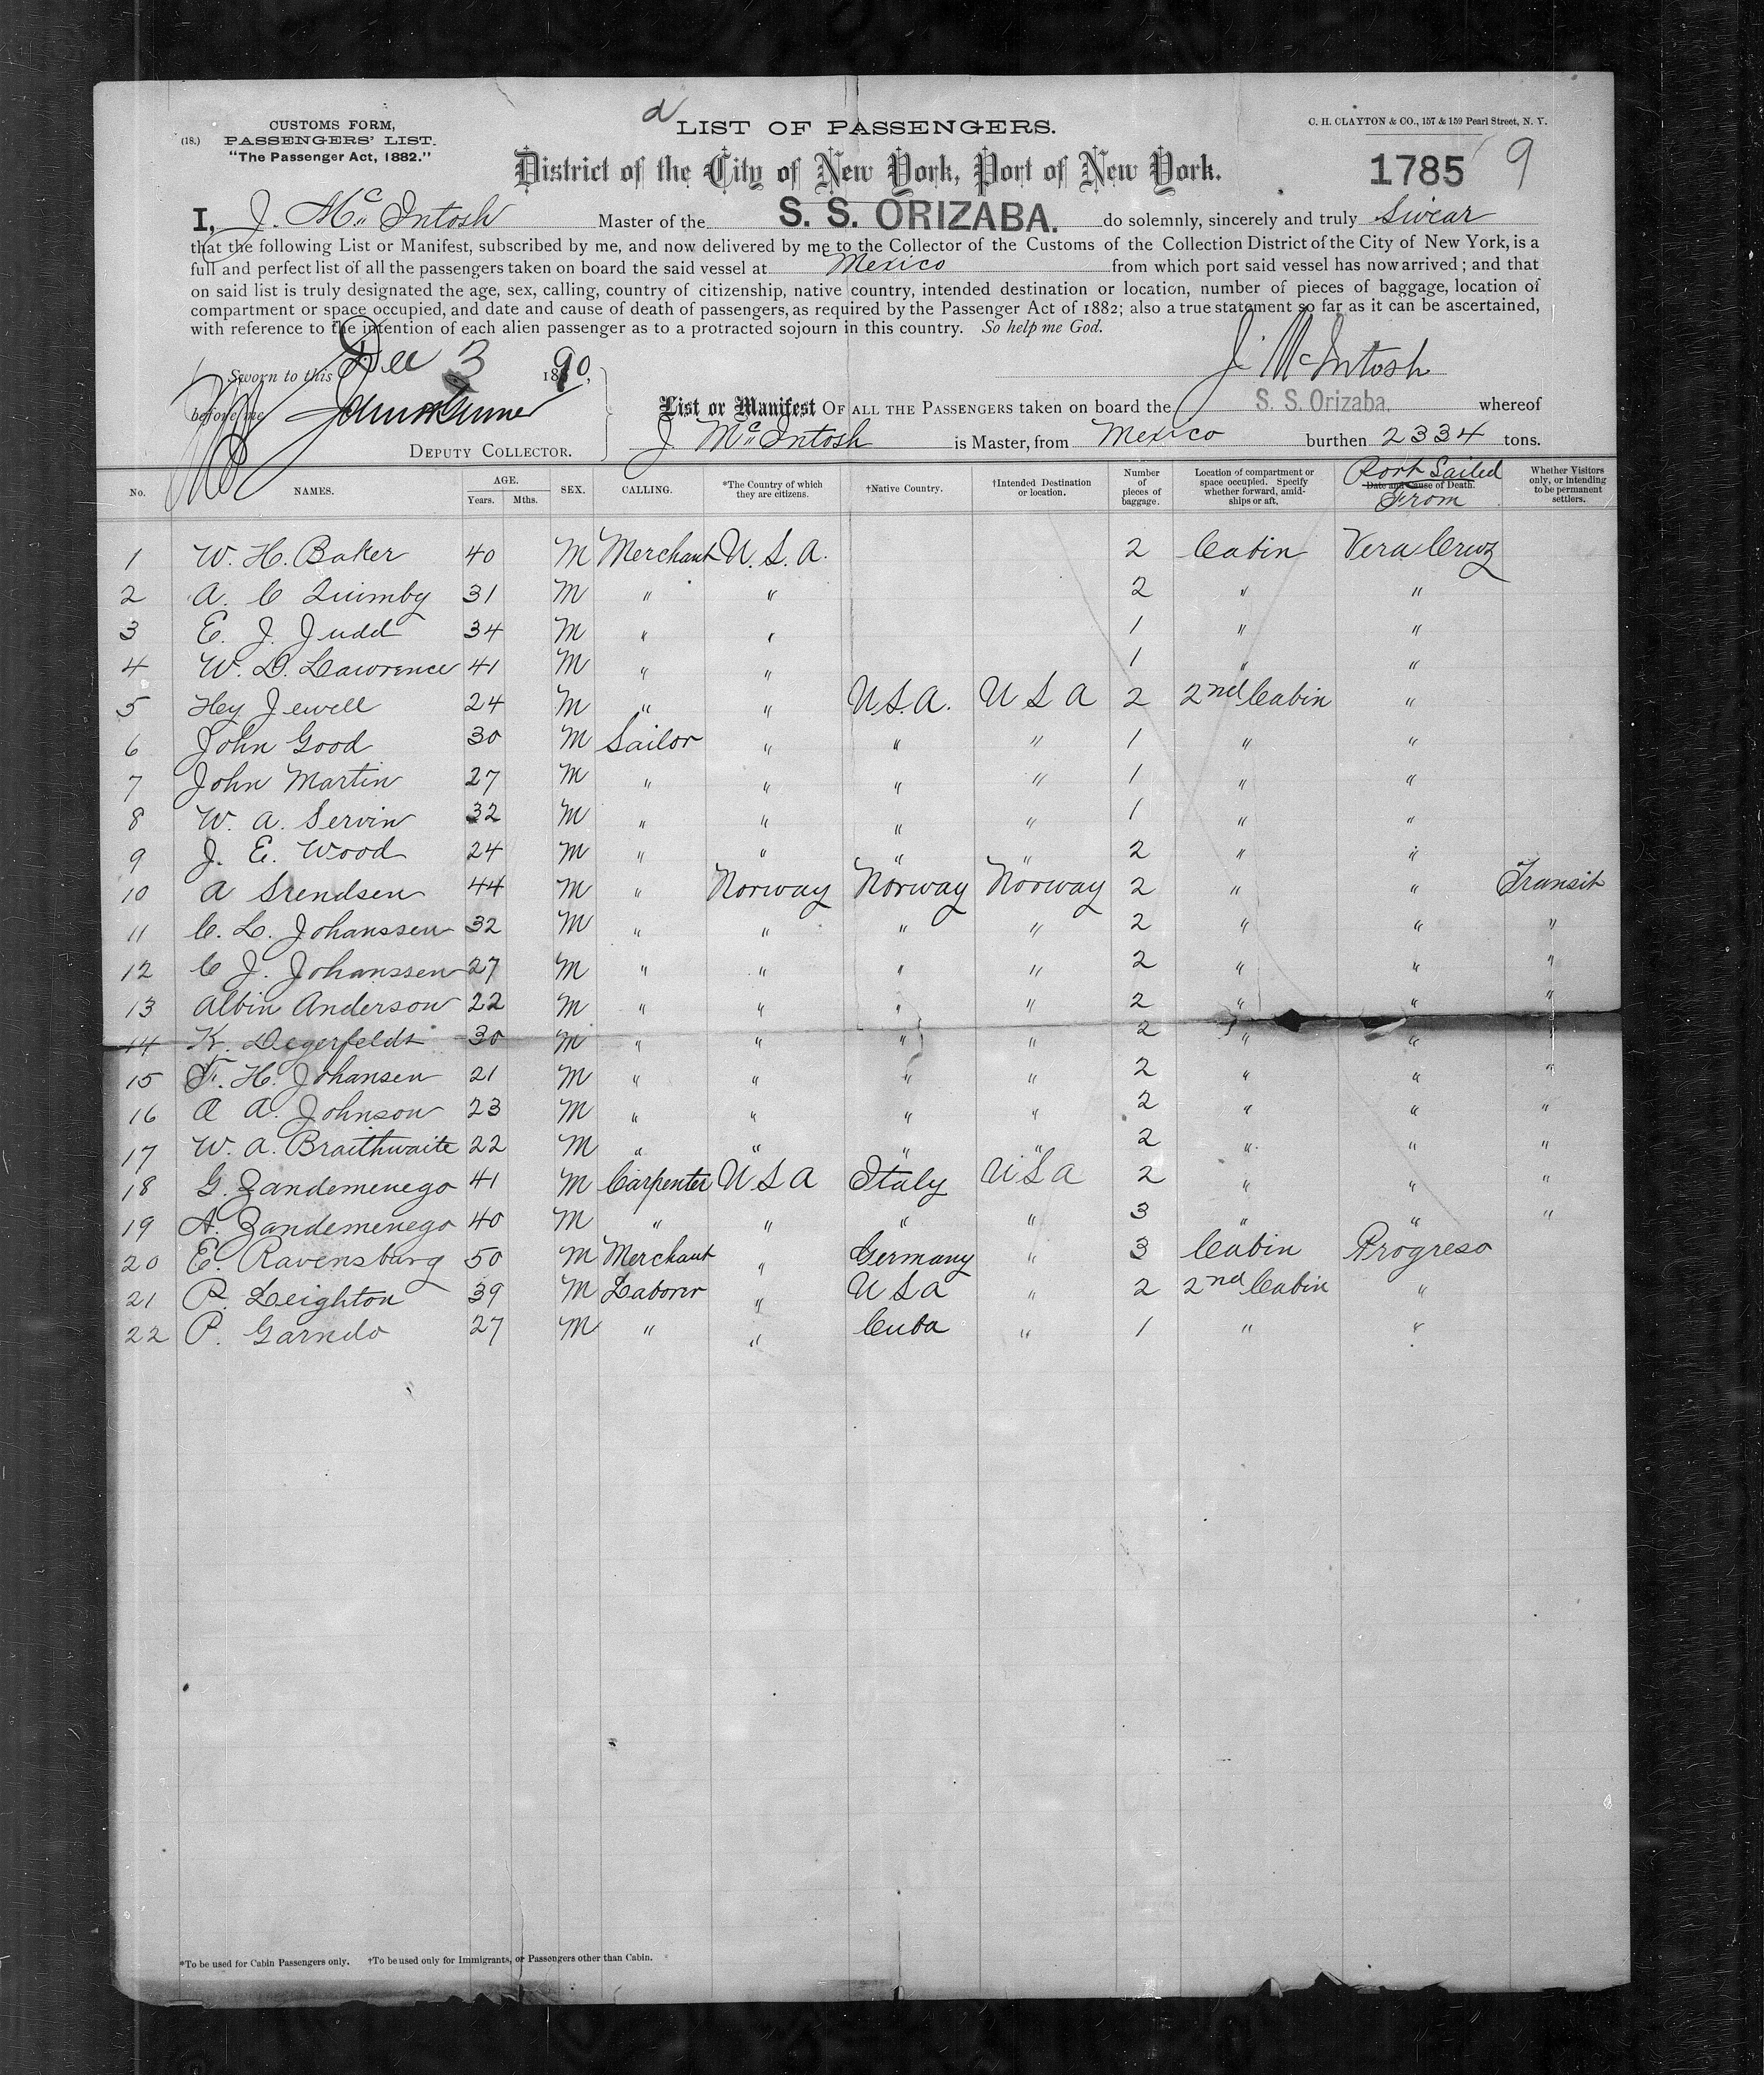 a
CUSTOMS FORM,
(18.) PASSENGERS' LIST.
"The Passenger Act, 1882."
LIST OF PASSENGERS.
C. H. CLAYTON & CO., 157 & 159 Pearl Street, N. Y.
District of the City of New York, Port of New York.
1785 9
I, J. Mc Intosh Master of the S. S. ORIZABA. do solemnly, sincerely and truly Swear
that the following List or Manifest, subscribed by me, and now delivered by me to the Collector of the Customs of the Collection District of the City of New York, is a
full and perfect list of all the passengers taken on board the said vessel at Mexico from which port said vessel has now arrived; and that
on said list is truly designated the age, sex, calling, country of citizenship, native country, intended destination or location, number of pieces of baggage, location of
compartment or space occupied, and date and cause of death of passengers, as required by the Passenger Act of 1882; also a true statement so far as it can be ascertained,
with reference to the intention of each alien passenger as to a protracted sojourn in this country. So help me God.
Sworn to this Dec 3 1890,
J. McIntosh
before me
List or Manifest OF ALL THE PASSENGERS taken on board the S. S. Orizaba. whereof
DEPUTY COLLECTOR.
J Mc Intosh is Master, from Mexico burthen 2334 tons.
No. NAMES. AGE. Years. Mths. SEX. CALLING. *The Country of which they are citizens. †Native Country. †Intended Destination or location. Number of pieces of baggage. Location of compartment or space occupied. Specify whether forward, amidships or aft. Date and Cause of Death. Port Sailed From Whether Visitors only, or intending to be permanent settlers.
1 W. H. Baker 40 M Merchant U. S. A. 2 Cabin Vera Cruz
2 A. C Quimby 31 M " " 2 " "
3 E. J. Judd 34 M " " 1 " "
4 W. D. Lawrence 41 M " " 1 " "
5 Hey Jewell 24 M " " U.S.A. U S A 2 2nd Cabin "
6 John Good 30 M Sailor " " " 1 " "
7 John Martin 27 M " " " " 1 " "
8 W. A. Servin 32 M " " " " 1 " "
9 J. E. Wood 24 M " " " " 2 " "
10 A Srendsen 44 M " Norway Norway Norway 2 " " Transit
11 C. L. Johanssen 32 M " " " " 2 " " "
12 C J. Johanssen 27 M " " " " 2 " " "
13 Albin Anderson 22 M " " " " 2 " " "
14 K. Degerfeldt 30 M " " " " 2 " " "
15 F. H. Johansen 21 M " " " " 2 " " "
16 A A. Johnson 23 M " " " " 2 " " "
17 W. A. Braithwaite 22 M " " " " 2 " " "
18 G. Zandemenego 41 M Carpenter U S A Italy U S A 2 " " "
19 A. Zandemenego 40 M " " " " 3 " " "
20 E. Ravensburg 50 M Merchant " Germany " 3 Cabin Progreso
21 P. Leighton 39 M Laborer " U S A " 2 2nd Cabin "
22 P. Garndo 27 M " " Cuba " 1 " "
*To be used for Cabin Passengers only. †To be used only for Immigrants, or Passengers other than Cabin.